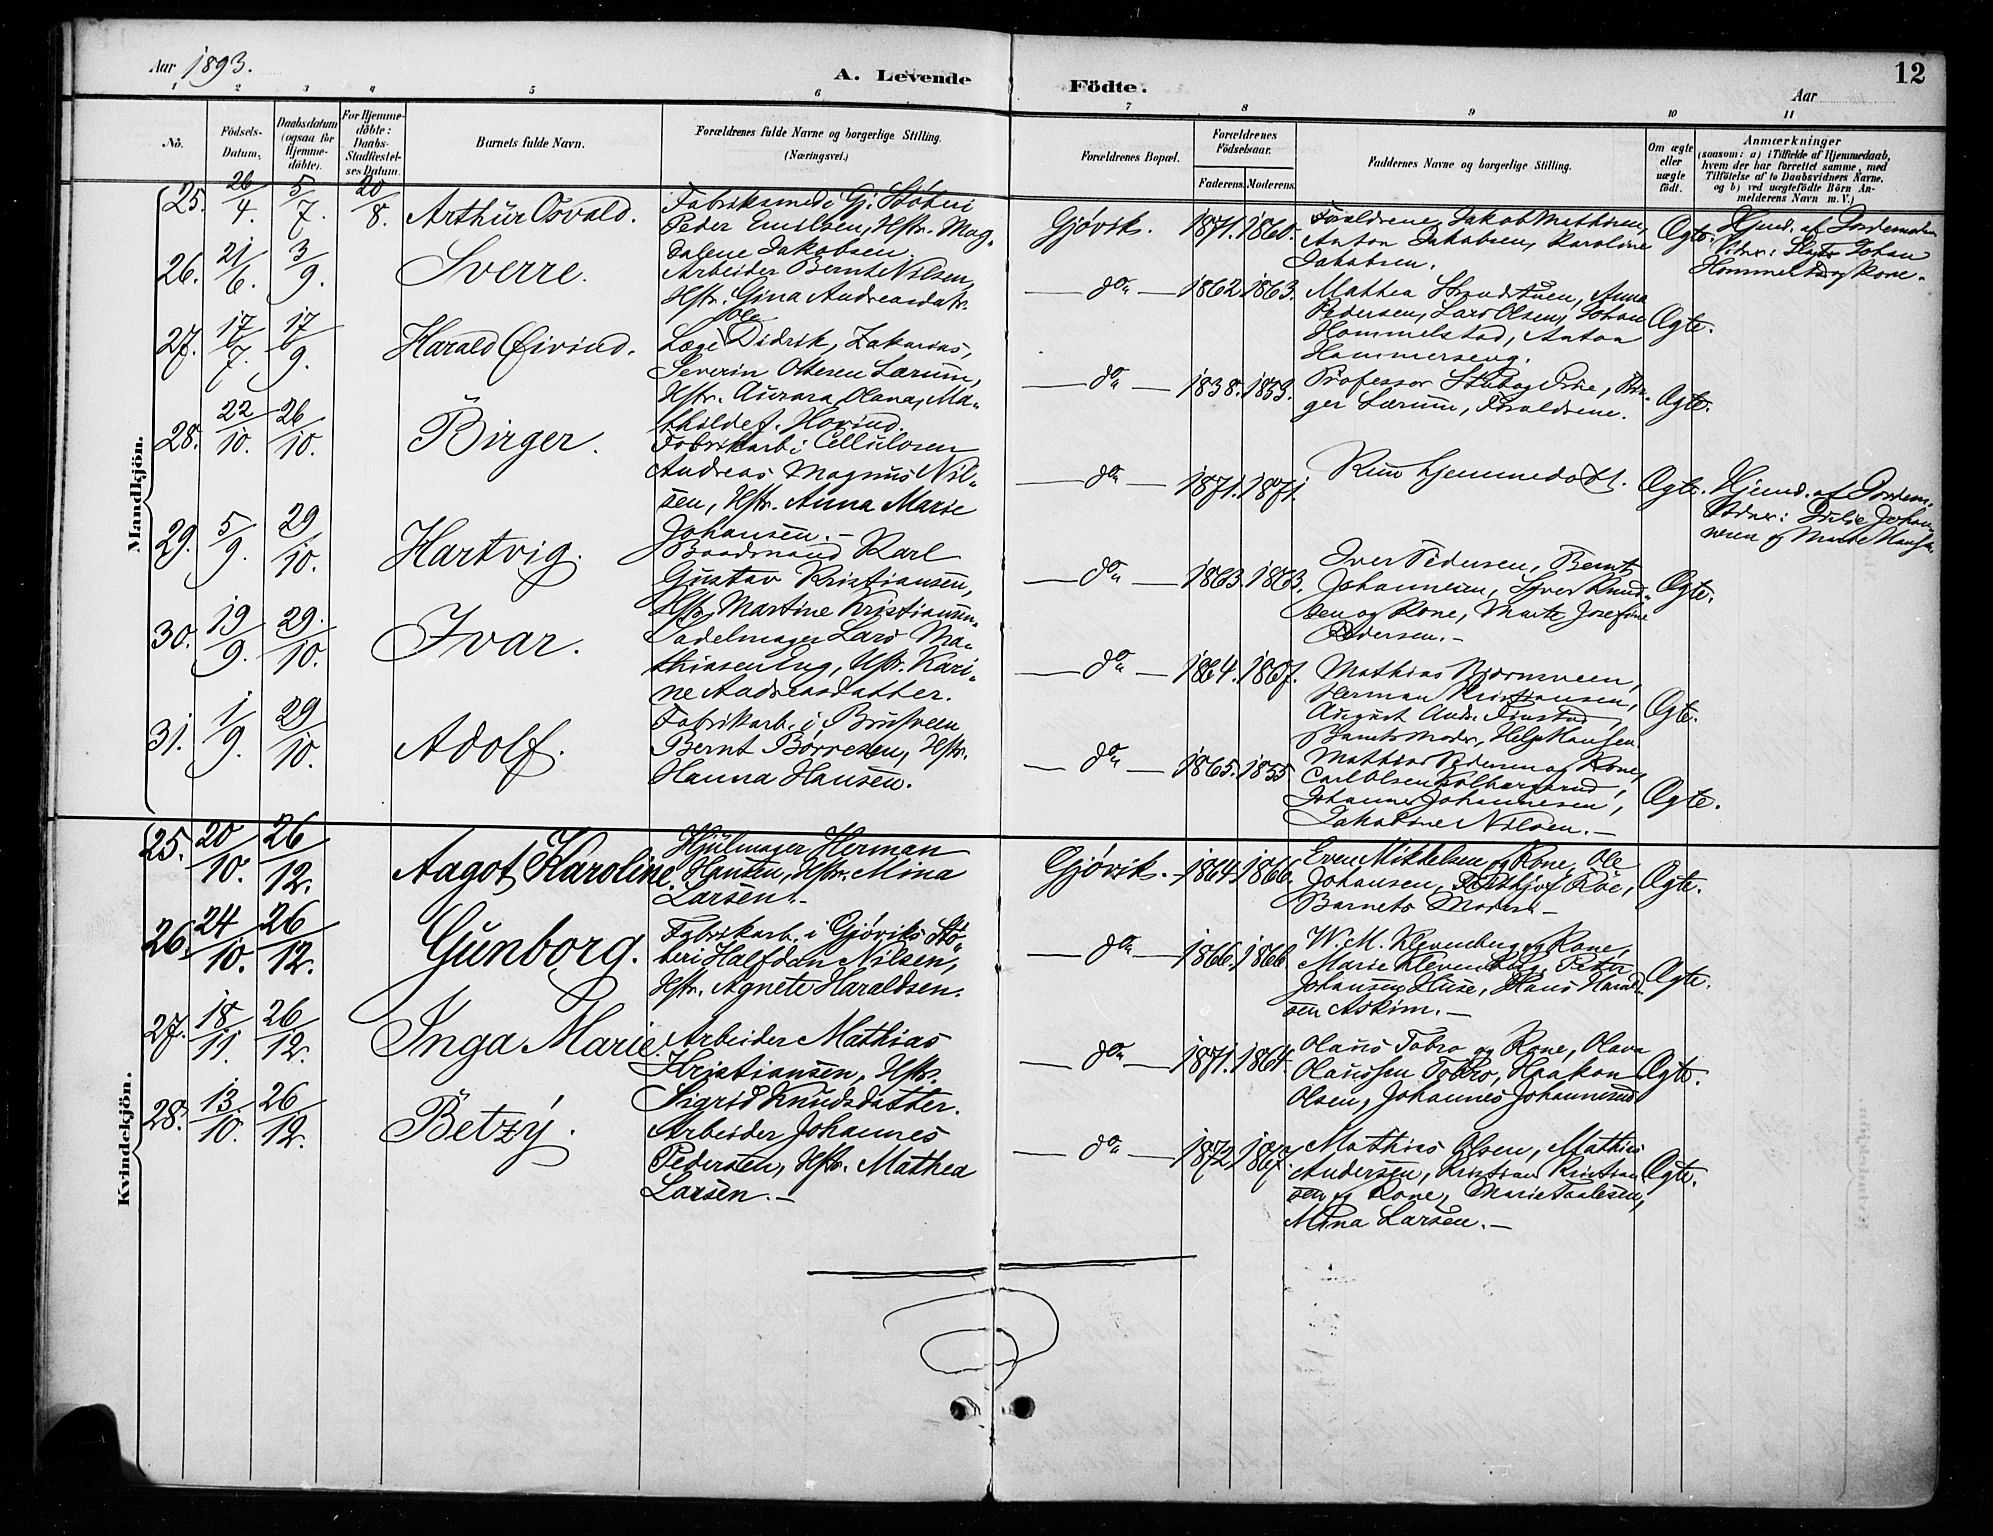 Aar 1893.
A. Levende Födte.
Aar
12
1 2 3 4 5 6 7 8 9 10 11
No.
Födsels-
Datum.
Daabsdatum
(ogsaa for
Hjemme-
döbte).
For Hjemme-
döbte:
Daabs-
Stadfæstel-
ses Datum.
Barnets fulde Navn.
Forældrenes fulde Navne og borgerlige Stilling.
(Næringsvei.)
Forældrenes Bopæl.
Forældrenes
Födselsaar.
Faderens. Moderens.
Faddernes Navne og borgerlige Stilling.
Om ægte
eller
uægte
födt.
Anmærkninger
(saasom: a) i Tilfælde af Hjemmedaab,
hvem der har forrettet samme, med
Tilföielse af to Daabsvidners Navne.
og b) ved uægtefödte Börn An-
melderens Navn m. V.)
Mandkjön.
25. 26/4. 5/7. 20/8. Arthur Osvald.
Fabriksmed i Gj. Støberi
Peder Emilsen, Hstr. Mag-
dalene Jakobsen.
Gjøvik. 1871. 1860.
Forældrene, Jakob Mathisen,
Anton Jakobsen, Karoline
Jakobsen.
Ægte.
Hjmd. af Jordemoder
Vidner: Johan
Hommelstad og Kone.
26. 21/6. 3/9. Sverre.
Arbeider Bernt Nilsen,
Hstr. Gina Andreasdatr.
do 1862. 1863.
Mathea Strandtuen, Anna
Pedersen, Lars Olsen, Johan
Hommelstad, Anton
Hammerseng.
Ægte.
27. 17/7. 17/9. Harald Øivind.
Ole
Læge Didrik, Zakarias,
Severin Ottesen Lærum,
Hstr. Aurora, Olana, Ma-
thilde f. Hovind.
do 1838. 1853.
Professor
ger Lærum, Forældrene.
Ægte.
28. 22/10. 26/10. Birger.
Fabrikarb. i Cellulosen
Andreas Magnus Nil-
sen, Hstr. Anna Marie
Johansen.-
do 1871. 1871.
Kun hjemmedøbt.
Ægte.
Hjmd. af Jordem.
Vidner: Julie Johan-
nesen og Marte
29. 5/9. 29/10. Hartvig.
Baadsmand Karl
Gustav Kristiansen,
Hstr. Martine Kristiansen.
do 1863. 1863.
Iver Pedersen, Bernt
Johannesen, Syver Knud-
sen og Kone, Marte Josefine
Pedersen.-
Ægte.
30. 19/9. 29/10. Ivar.
Sadelmager Lars Ma-
thiasen Eng, Hstr. Kari-
ne Andreasdatter.
do 1864. 1867.
Mathias Bjørnsveen,
Herman Kristiansen,
August Andr. Finstad,
Barnets Moder, Helge Hansen.
Ægte.
31. 1/9. 29/10. Adolf.
Fabrikarb. i Brufveen
Bernt Børresen, Hstr.
Hanna Hansen.
do 1865. 1855.
Mathias Pedersen og Kone,
Carl Olsen Kolbergsrud,
Johannes Johannesen,
Jakobine Nilsen.-
Ægte.
Kvindekjön.
25. 20/10. 26/12. Aagot Karoline.
Hjulmager Herman
Hansen, Hstr. Mina
Larsen.-
Gjøvik. 1864. 1866.
Even Mikkelsen og Kone, Ole
Johansen, Fritjof Roe,
Barnets Moder.-
Ægte.
26. 24/10. 26/12. Gunborg.
Fabrikarb. i Gjøviks Stø-
beri Halfdan Nilsen,
Hstr. Agnete Haraldsen.
do 1866. 1866.
W. M. Klevenberg og Kone,
Marie Klevenberg, Peter
Johansen Huse, Hans Harald-
sen Askim.-
Ægte.
27. 18/11. 26/12. Inga Marie.
Arbeider Mathias
Kristiansen, Hstr.
Sigrid Knudsdatter.
do 1871. 1864.
Olaus Tobro og Kone, Olava
Olaussen Tobro, Haakon
Olsen, Johannes Johannesrud
Ægte.
28. 13/10. 26/12. Betzy.
Arbeider Johannes
Pedersten, Hstr. Mathea
Larsen.-
do 1872. 1867.
Mathias Olsen, Mathias
Andersen, Kristian Kristian-
sen og Kone, Marie Taalesen,
Mina Larsen.-
Ægte.